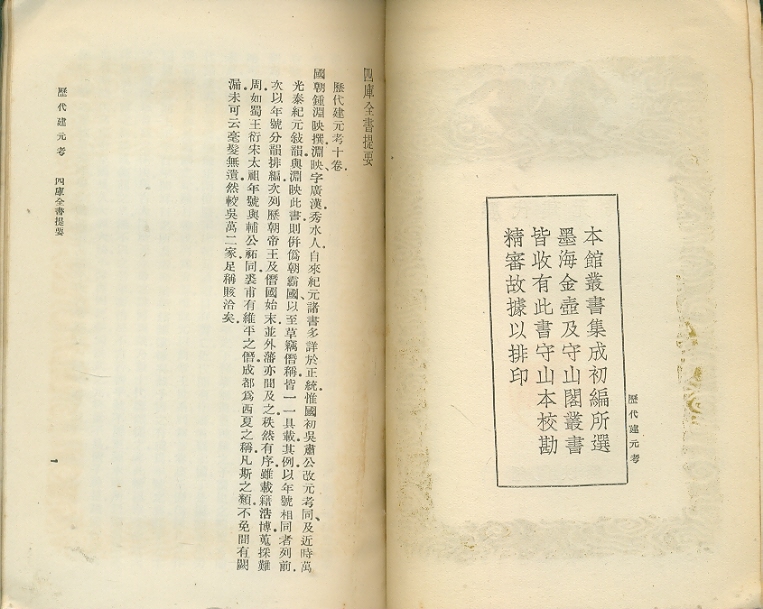 本館叢書集成初編所選
墨海金壺及守山閣叢書
皆收有此書守山本校勘
精審故據以排印
歷代建元考
四庫全書提要
歷代建元考十卷.
國朝鍾淵映撰.淵映、字廣漢.秀水人.自來紀元諸書多詳於正統惟國初吳肅公改元考同、及近時萬
光泰紀元敍韻.與淵映此書則併僞朝霸國.以至草竊僭稱皆一一具載.其例.以年號相同者列前.
次以年號分韻排編.次列歷朝帝王及僭國始末.並外藩亦間及之.秩然有序.雖載籍浩博蒐採難
周.如蜀王衍宋太祖年號與輔公祏同.裘甫有羅平之僭.成都爲西夏之稱.凡斯之類.不免間有闕
漏.未可云毫髮無遺.然較吳萬二家.足稱賅洽矣.
歷代建元考 四庫全書提要
一